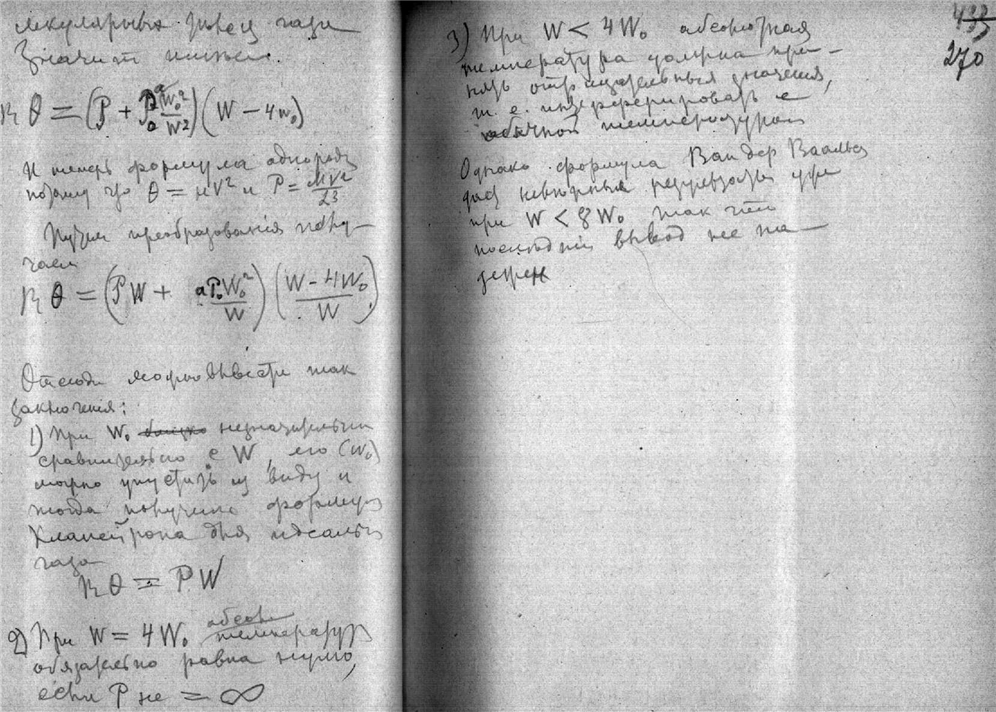 лекулярных
Значит
R θ = (P + P₀ a W₀²/W²) (W − 4w₀)
И теперь формула однородн
потому что θ = μV² и P = μV²/23
Путем преобразования полу-
чаем
R θ = (PW + aP₀W₀²/W) (W − 4W₀/W)
Отсюда можно вывести так
заключения:
1) При W₀ незначительн
сравнительно с W, его (W₀)
можно упустить из виду и
тогда получим формулу
Клапейрона для идеальн
газа
Rθ = PW
2) При W = 4W₀ температур
обязательно равна нулю,
если P не = ∞
433
270
3) При W < 4W₀ абсолютная
температура должна при-
нять отрицательные значения,
т. е.
обычной температурой
Однако формула Ван дер Ваальса
даёт неверные результаты уже
при W < 8W₀ так что
последний вывод не на-
дежен